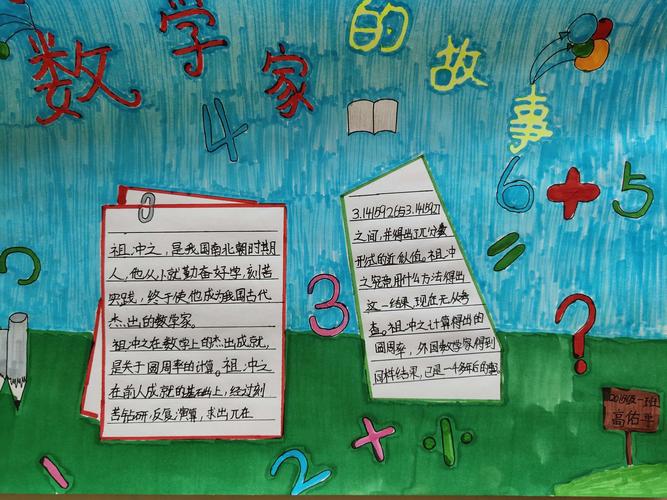 数学家的故事
4
6+5
=
3
?
2
×
÷
祖冲之，是我国南北朝时期
人，他从小就勤奋好学，刻苦
实践，终于使他成为我国古代
杰出的数学家。
祖冲之在数学上的杰出成就，
是关于圆周率的计算。祖冲之
在前人成就的基础上，经过刻
苦钻研，反复演算，求出π在
3.1415926与3.1415927
之间，并得出了π分数
形式的近似值。祖冲
之究竟用什么方法得出
这一结果，现在无从考
查。祖冲之计算得出的
圆周率，外国数学家得到
同样结果，已是一千多年
一班
高佑